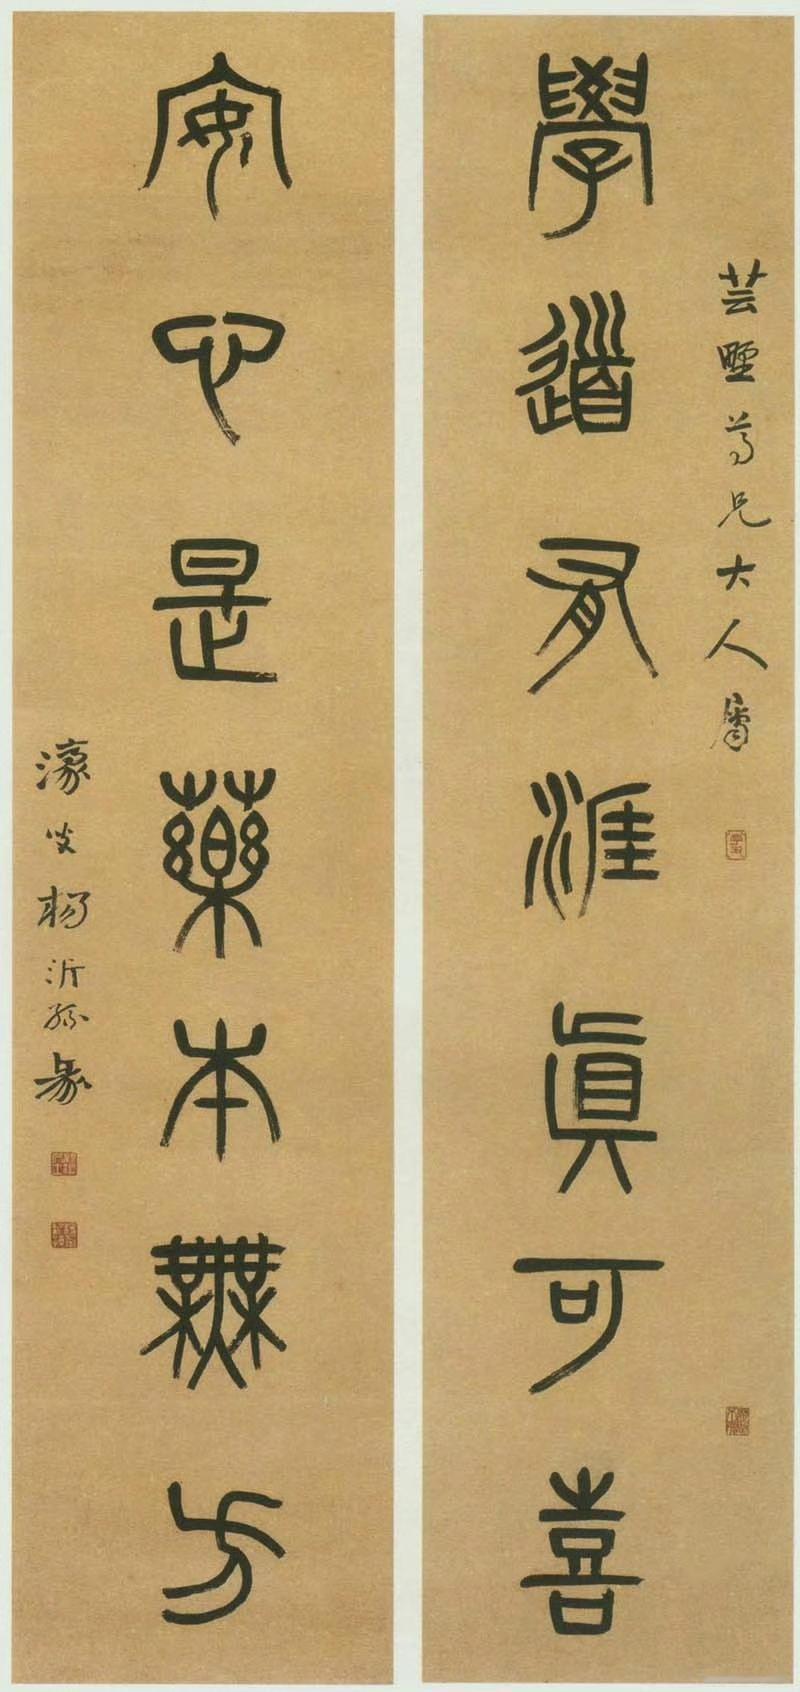 芸墅尊兄大人屬
學道有涯眞可喜
安心是藥本無方
濠叟楊沂孫篆